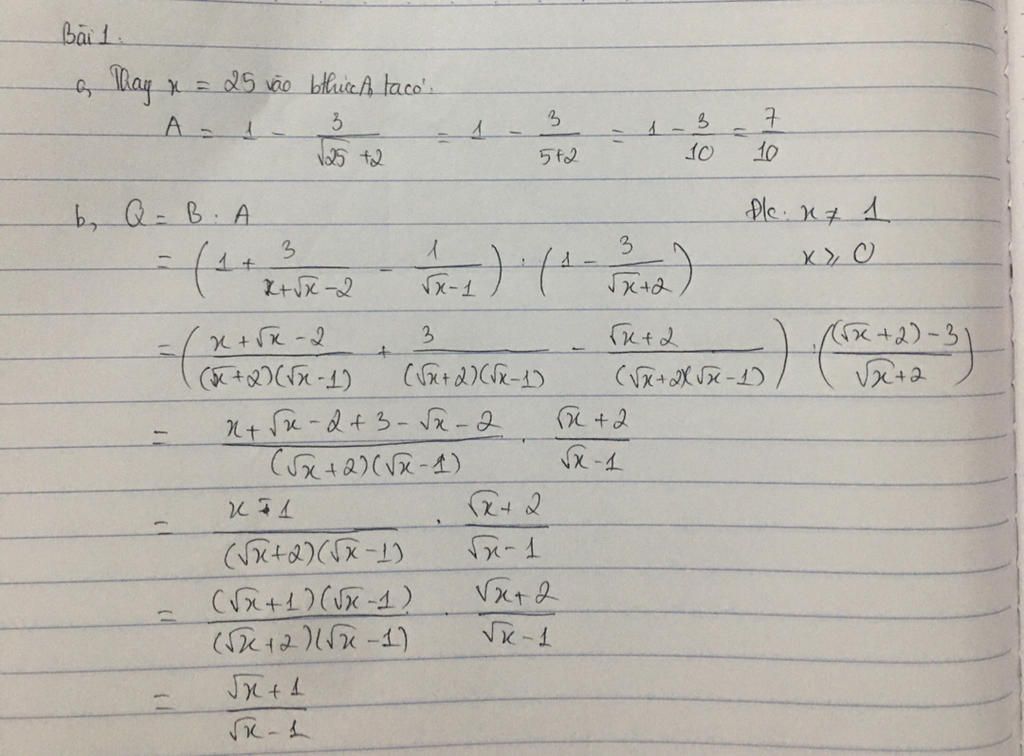 Bài 1.
a, Thay x = 25 vào bthức A, ta có:
A = 1 - 3/(√25 + 2) = 1 - 3/(5+2) = 1 - 3/10 = 7/10
b, Q = B : A Đk: x ≠ 1
= (1 + 3/(x+√x-2) - 1/(√x-1)) : (1 - 3/(√x+2)) x ≥ 0
= ((x+√x-2)/((√x+2)(√x-1)) + 3/((√x+2)(√x-1)) - (√x+2)/((√x+2)(√x-1))) : (((√x+2)-3)/(√x+2))
= (x+√x-2+3-√x-2)/((√x+2)(√x-1)) . (√x+2)/(√x-1)
= (x-1)/((√x+2)(√x-1)) . (√x+2)/(√x-1)
= ((√x+1)(√x-1))/((√x+2)(√x-1)) . (√x+2)/(√x-1)
= (√x+1)/(√x-1)